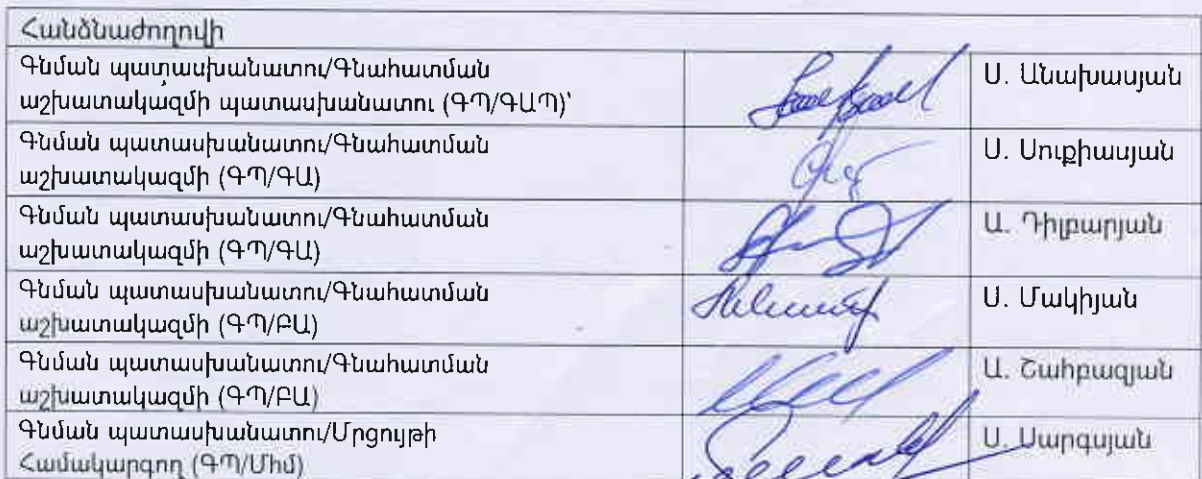 Հանձնաժողովի
Գնման պատասխանատու/Գնահատման
աշխատակազմի պատասխանատու (ԳՊ/ԳԱՊ)՝
Ս. Անախասյան
Գնման պատասխանատու/Գնահատման
աշխատակազմի (ԳՊ/ԳԱ)
Ս. Սուքիասյան
Գնման պատասխանատու/Գնահատման
աշխատակազմի (ԳՊ/ԳԱ)
Ա. Դիլբարյան
Գնման պատասխանատու/Գնահատման
աշխատակազմի (ԳՊ/ԲԱ)
Ս. Մակիյան
Գնման պատասխանատու/Գնահատման
աշխատակազմի (ԳՊ/ԲԱ)
Ա. Շահբազյան
Գնման պատասխանատու/Մրցույթի
Համակարգող (ԳՊ/Մհմ)
Ս. Սարգսյան